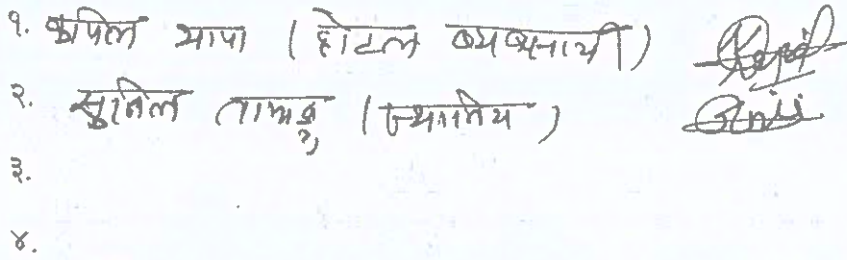 १. कपिल थापा (होटल व्यवसायी)
२. सुनिल तामाङ्ग (स्थानिय)
३.
४.